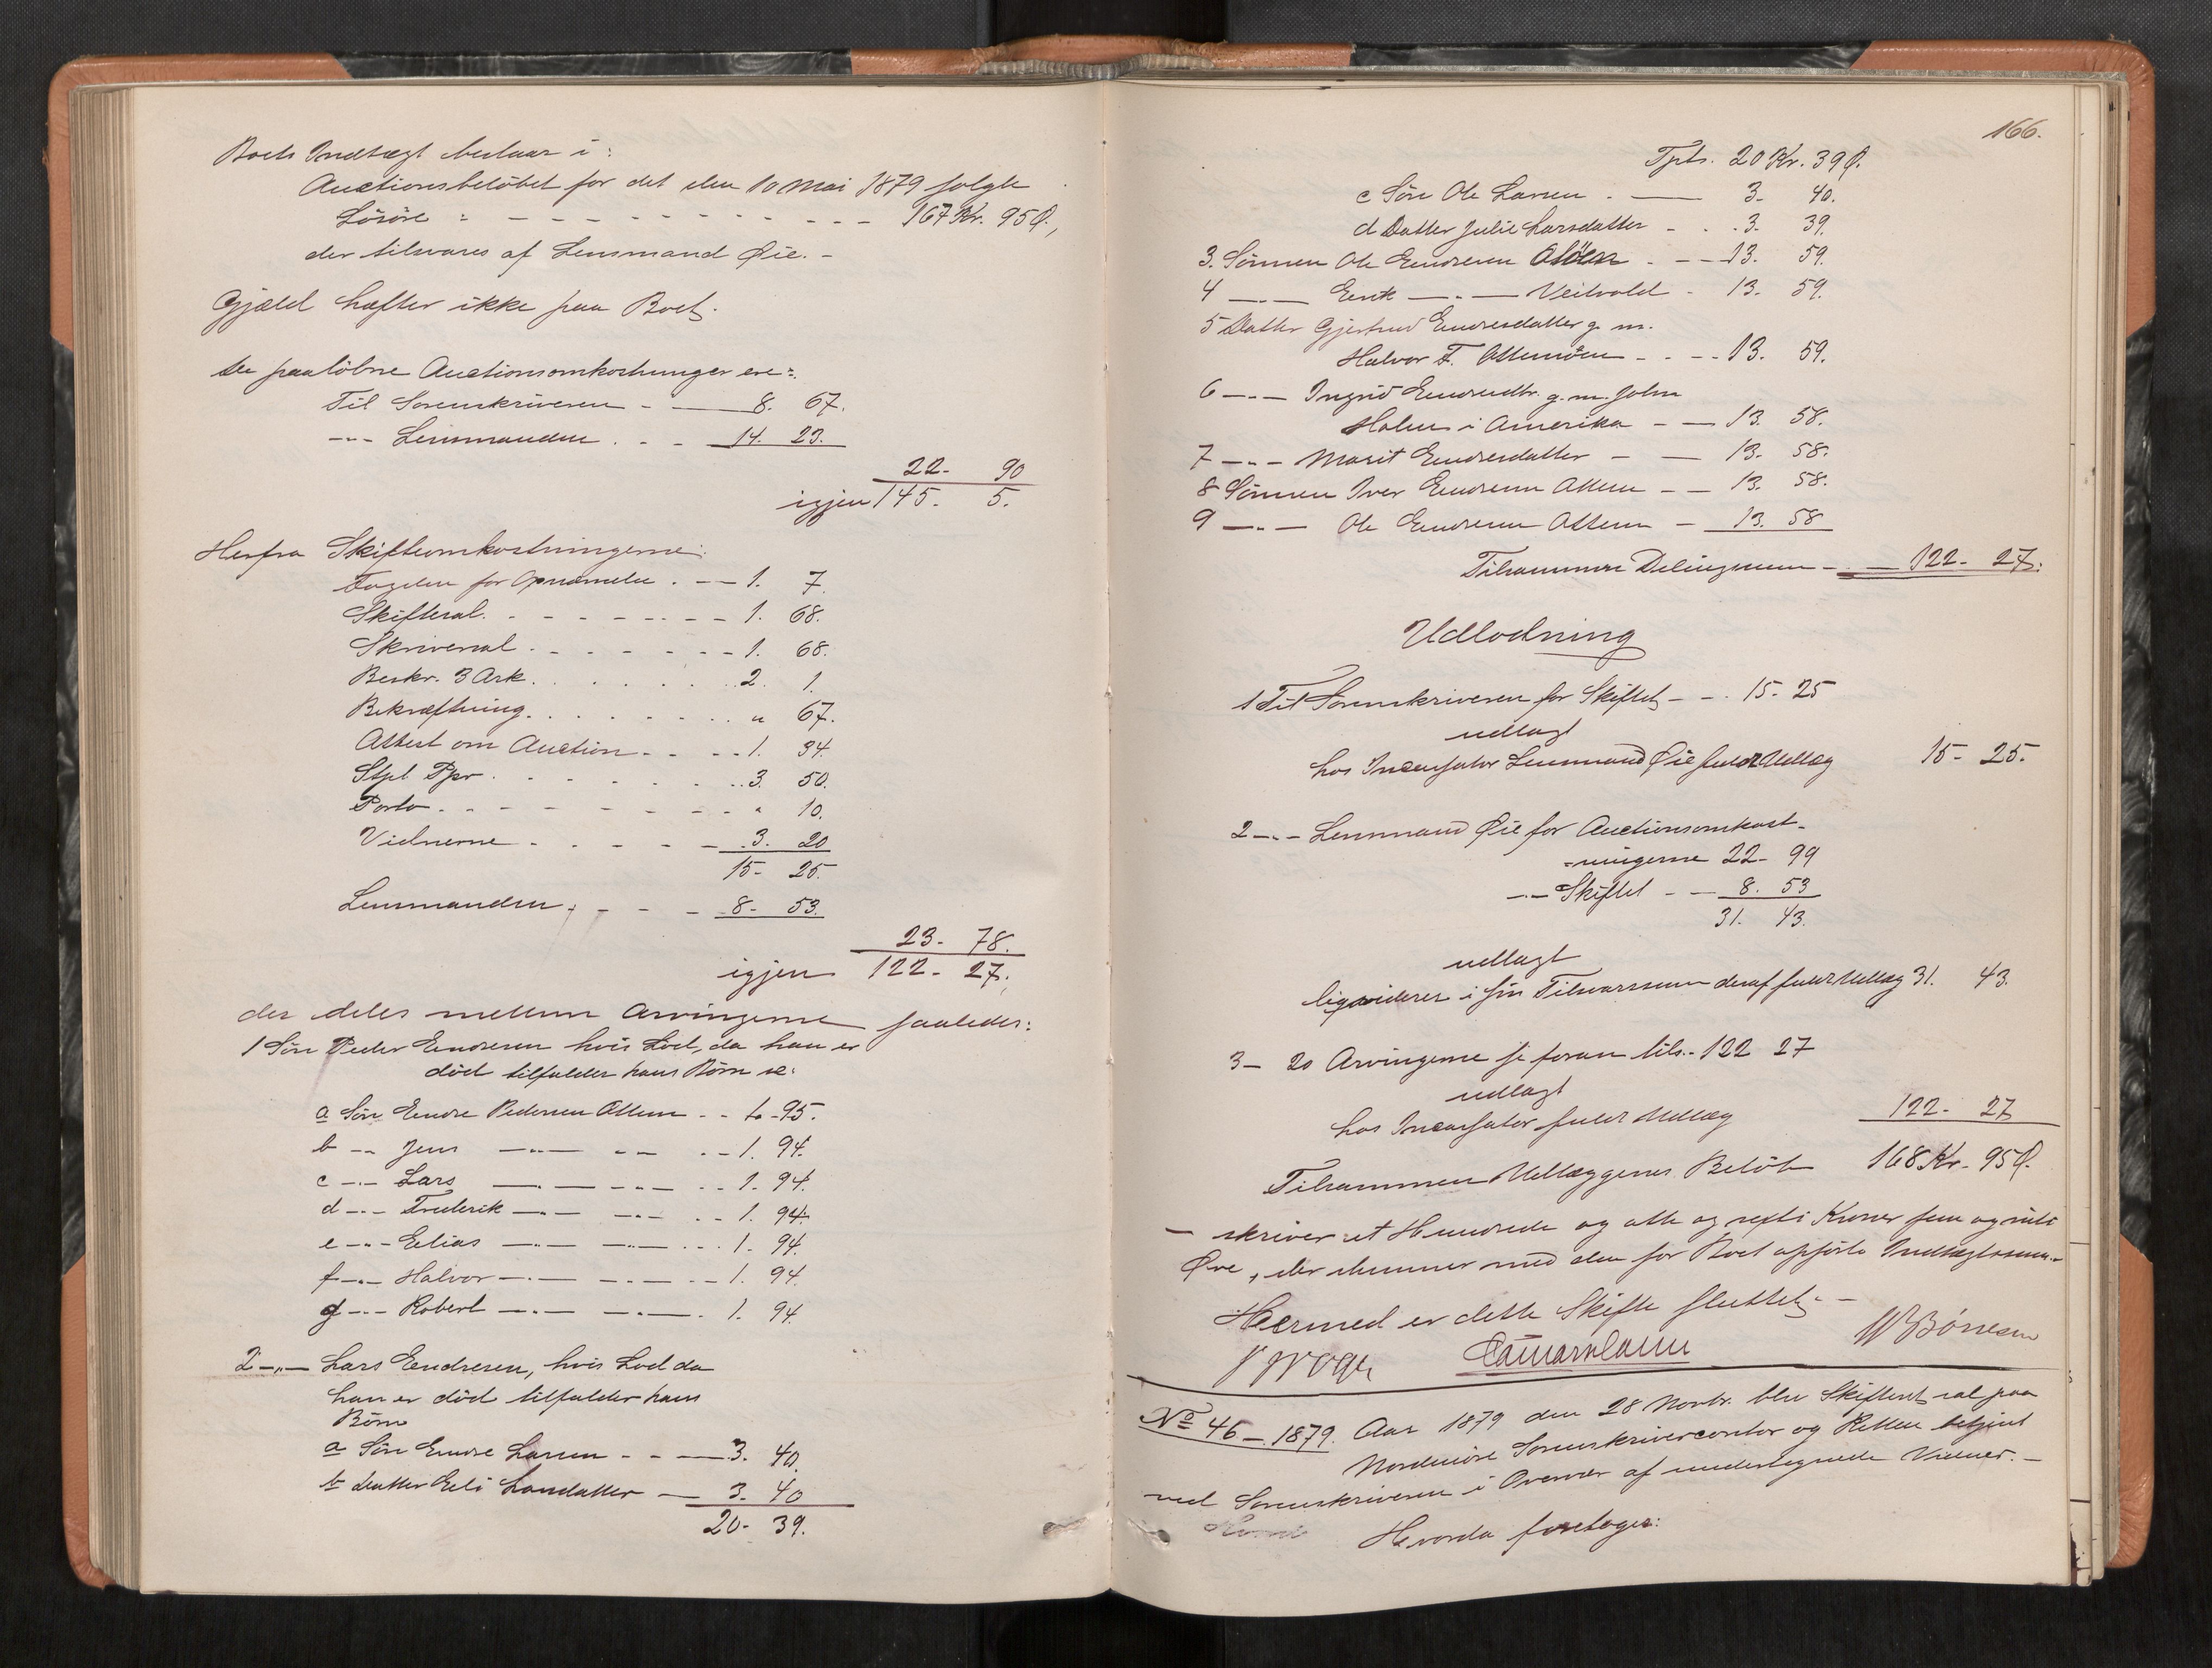 Boets Indtægt bestaar i:
Auctionsbelöbet for det den 10 Mai 1879 solgte
Lösöre : - - - - - - - - - - - 167 Kr. 95 Ø.,
der tilsvares af Lensmand Øie. -
Gjæld hæfter ikke paa Boet.
De paalöbne Auctionsomkostninger ere:
Til Sorenskriveren - — 8. 67.
-„- Lensmanden . - - 14. 23.
22- 90
igjen 145. 5.
Herfra Skifteomkostningerne:
Fogden for Opnævnelse . -- 1. 7.
Skiftesal. - - - - - - - - 1. 68.
Skriversal - - - - - - - 1. 68.
Beskr. 3 Ark. . . . . . . 2. 1.
Bekræftning. . . . . . . . „ 67.
Attest om Auction - - - - 1. 34.
Stpl Ppr . - . . . . . . 3. 50.
Porto . - - - - - - - - „ 10.
Vidnerne - - - - - - 3. 20
15- 25.
Lensmanden, - - - - 8- 53.
23- 78.
igjen 122- 27.
der deles mellem Arvingerne saaledes:
1 Sön Peder Endresen hvis Lod, da han er
död tilfalder hans Börn se:
a Sön Endre Pedersen Ottem - - 1.-95.
b -„- Jens -„- -- - - 1. 94.
c -„- Lars -„- -„- - - 1. 94.
d -„- Frederik -„- -„- - - 1. 94.
e -„- Elias -„- -„- - - - 1. 94.
f -„- Halvor -„- -„- - - 1. 94.
g -„- Robert -„- -„- . 1. 94.
2 -„- Lars Endresen, hvis Lod da
han er död tilfalder hans
Börn
a Sön Endre Larsen - - - 3. 40.
b Datter Eli Larsdatter — 3. 40
20- 39.
166.
Tpts. 20 Kr. 39 Ø.
c Sön Ole Larsen . — 3- 40.
d Datter Julie Larsdatter - . . 3- 39.
3. Sönnen Ole Endresen - -- 13. 59.
4 -„- Erik -„- Veitvold - 13. 59.
5 Datter Gjertrud Endresdatter g. m.
Halvor F. - - -- 13. 59.
6 -„- Ingrid Endresdtr. g. m. John
Holen i Amerika - — 13. 58.
7 -„- Marit Endresdatter - — 13. 58.
8 Sönnen Iver Endresen Ottem - - 13. 58.
9 -„- Ole Endresen Ottem - 13. 58
Tilsammen Delingssum - — 122- 27.
Udlodning
1 Til Sorenskriveren for Skiftet - -. 15- 25
udlagt
hos Incassator Lensmand Øie fuldt Udlæg 15- 25.
2 -„- Lensmand Øie for Auctionsomkost-
-ningerne 22- 99
-„- Skiftet - — 8. 53
31. 43.
udlagt
liqvideres i sin Tilsvarssum deraf fuldt Udlæg 31. 43.
3- 20 Arvingerne se foran tils.- 122 27
udlagt
hos Incassator fuldt Udlæg 122- 27
Tilsammen Udlæggenes Belöb 168 Kr. 95 Ø.
- skriver et Hundrede og otte og sexti Kroner fem og niti
Øre, der stemmer med den for Boet opförte Indtægtssum.-
Hermed er dette Skifte sluttet. -
No 46 - 1879. Aar 1879 den 28 Novbr. blev Skifteret sat paa
Nordmöre Sorenskrivercontor og Retten betjent
ved Sorenskriveren i Overvær af undertegnede Vidner. -
Hvorda foretoges: